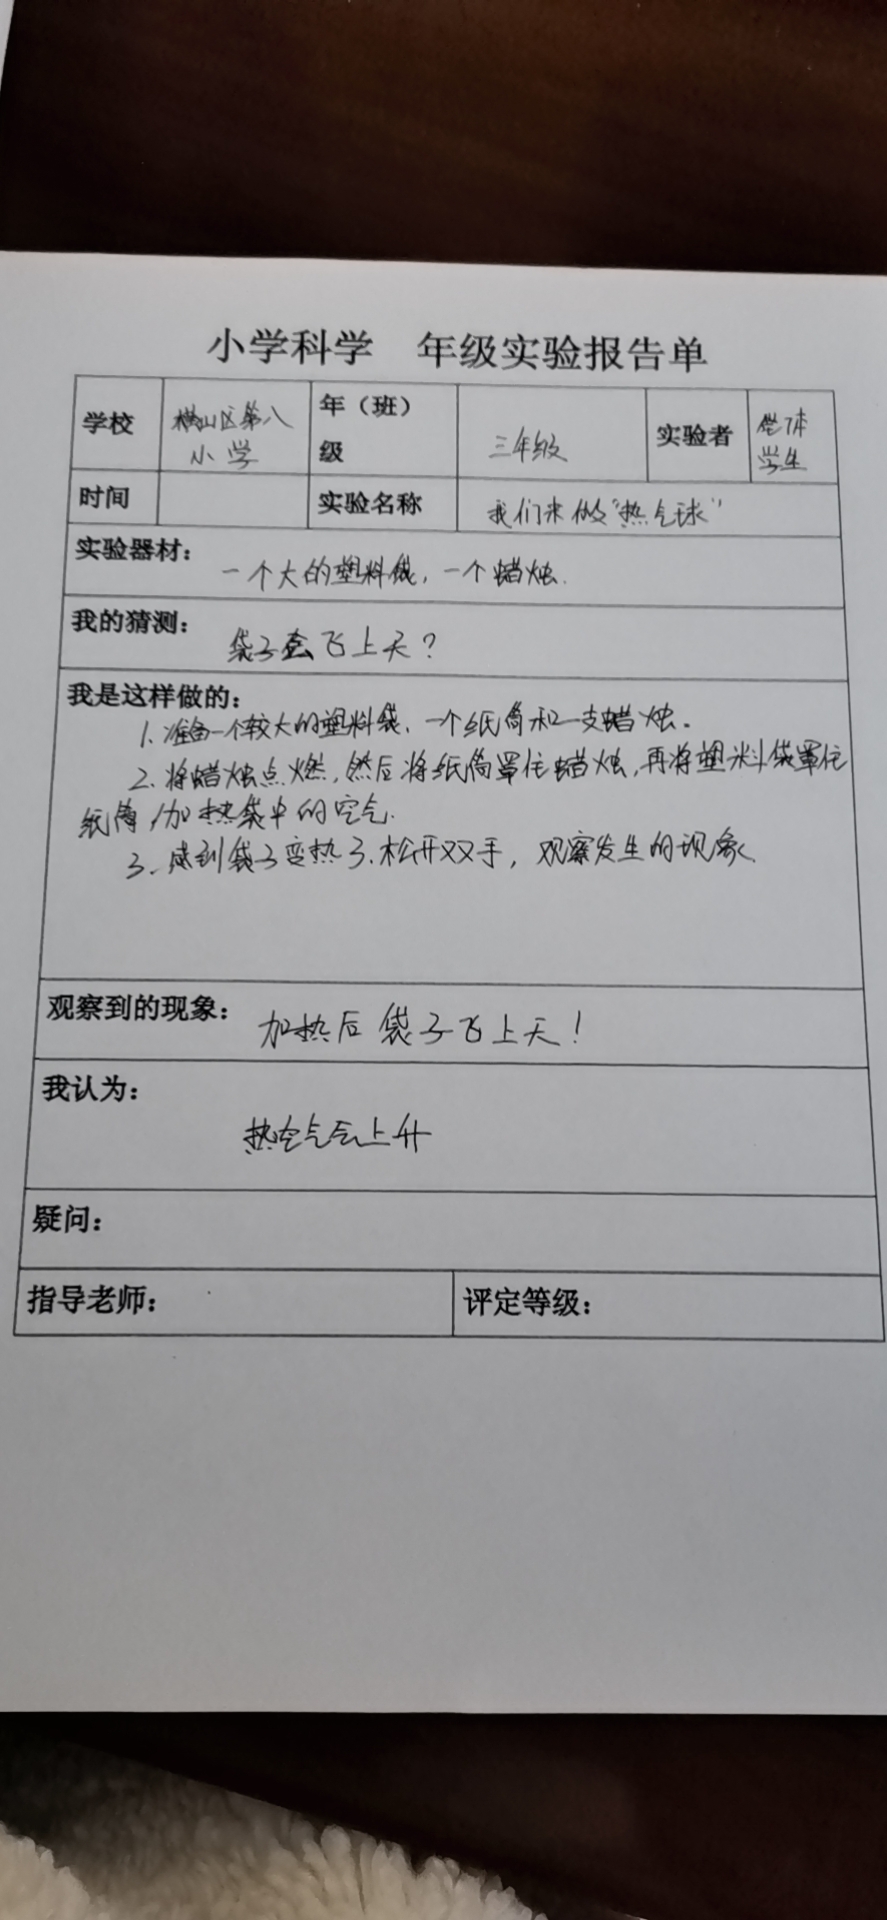 小学科学 年级实验报告单
学校
横山区第八
小学
年（班）
级
三年级
实验者
学生
时间
实验名称
我们来做“热气球”
实验器材：
一个大的塑料袋，一个蜡烛.
我的猜测：
袋子会飞上天？
我是这样做的：
1. 准备一个较大的塑料袋、一个纸筒和一支蜡烛。
2. 将蜡烛点燃，然后将纸筒罩住蜡烛，再将塑料袋罩住
纸筒，加热袋中的空气.
3. 感到袋子变热了.松开双手，观察发生的现象.
观察到的现象：
加热后袋子飞上天！
我认为：
热空气会上升
疑问：
指导老师：
评定等级：